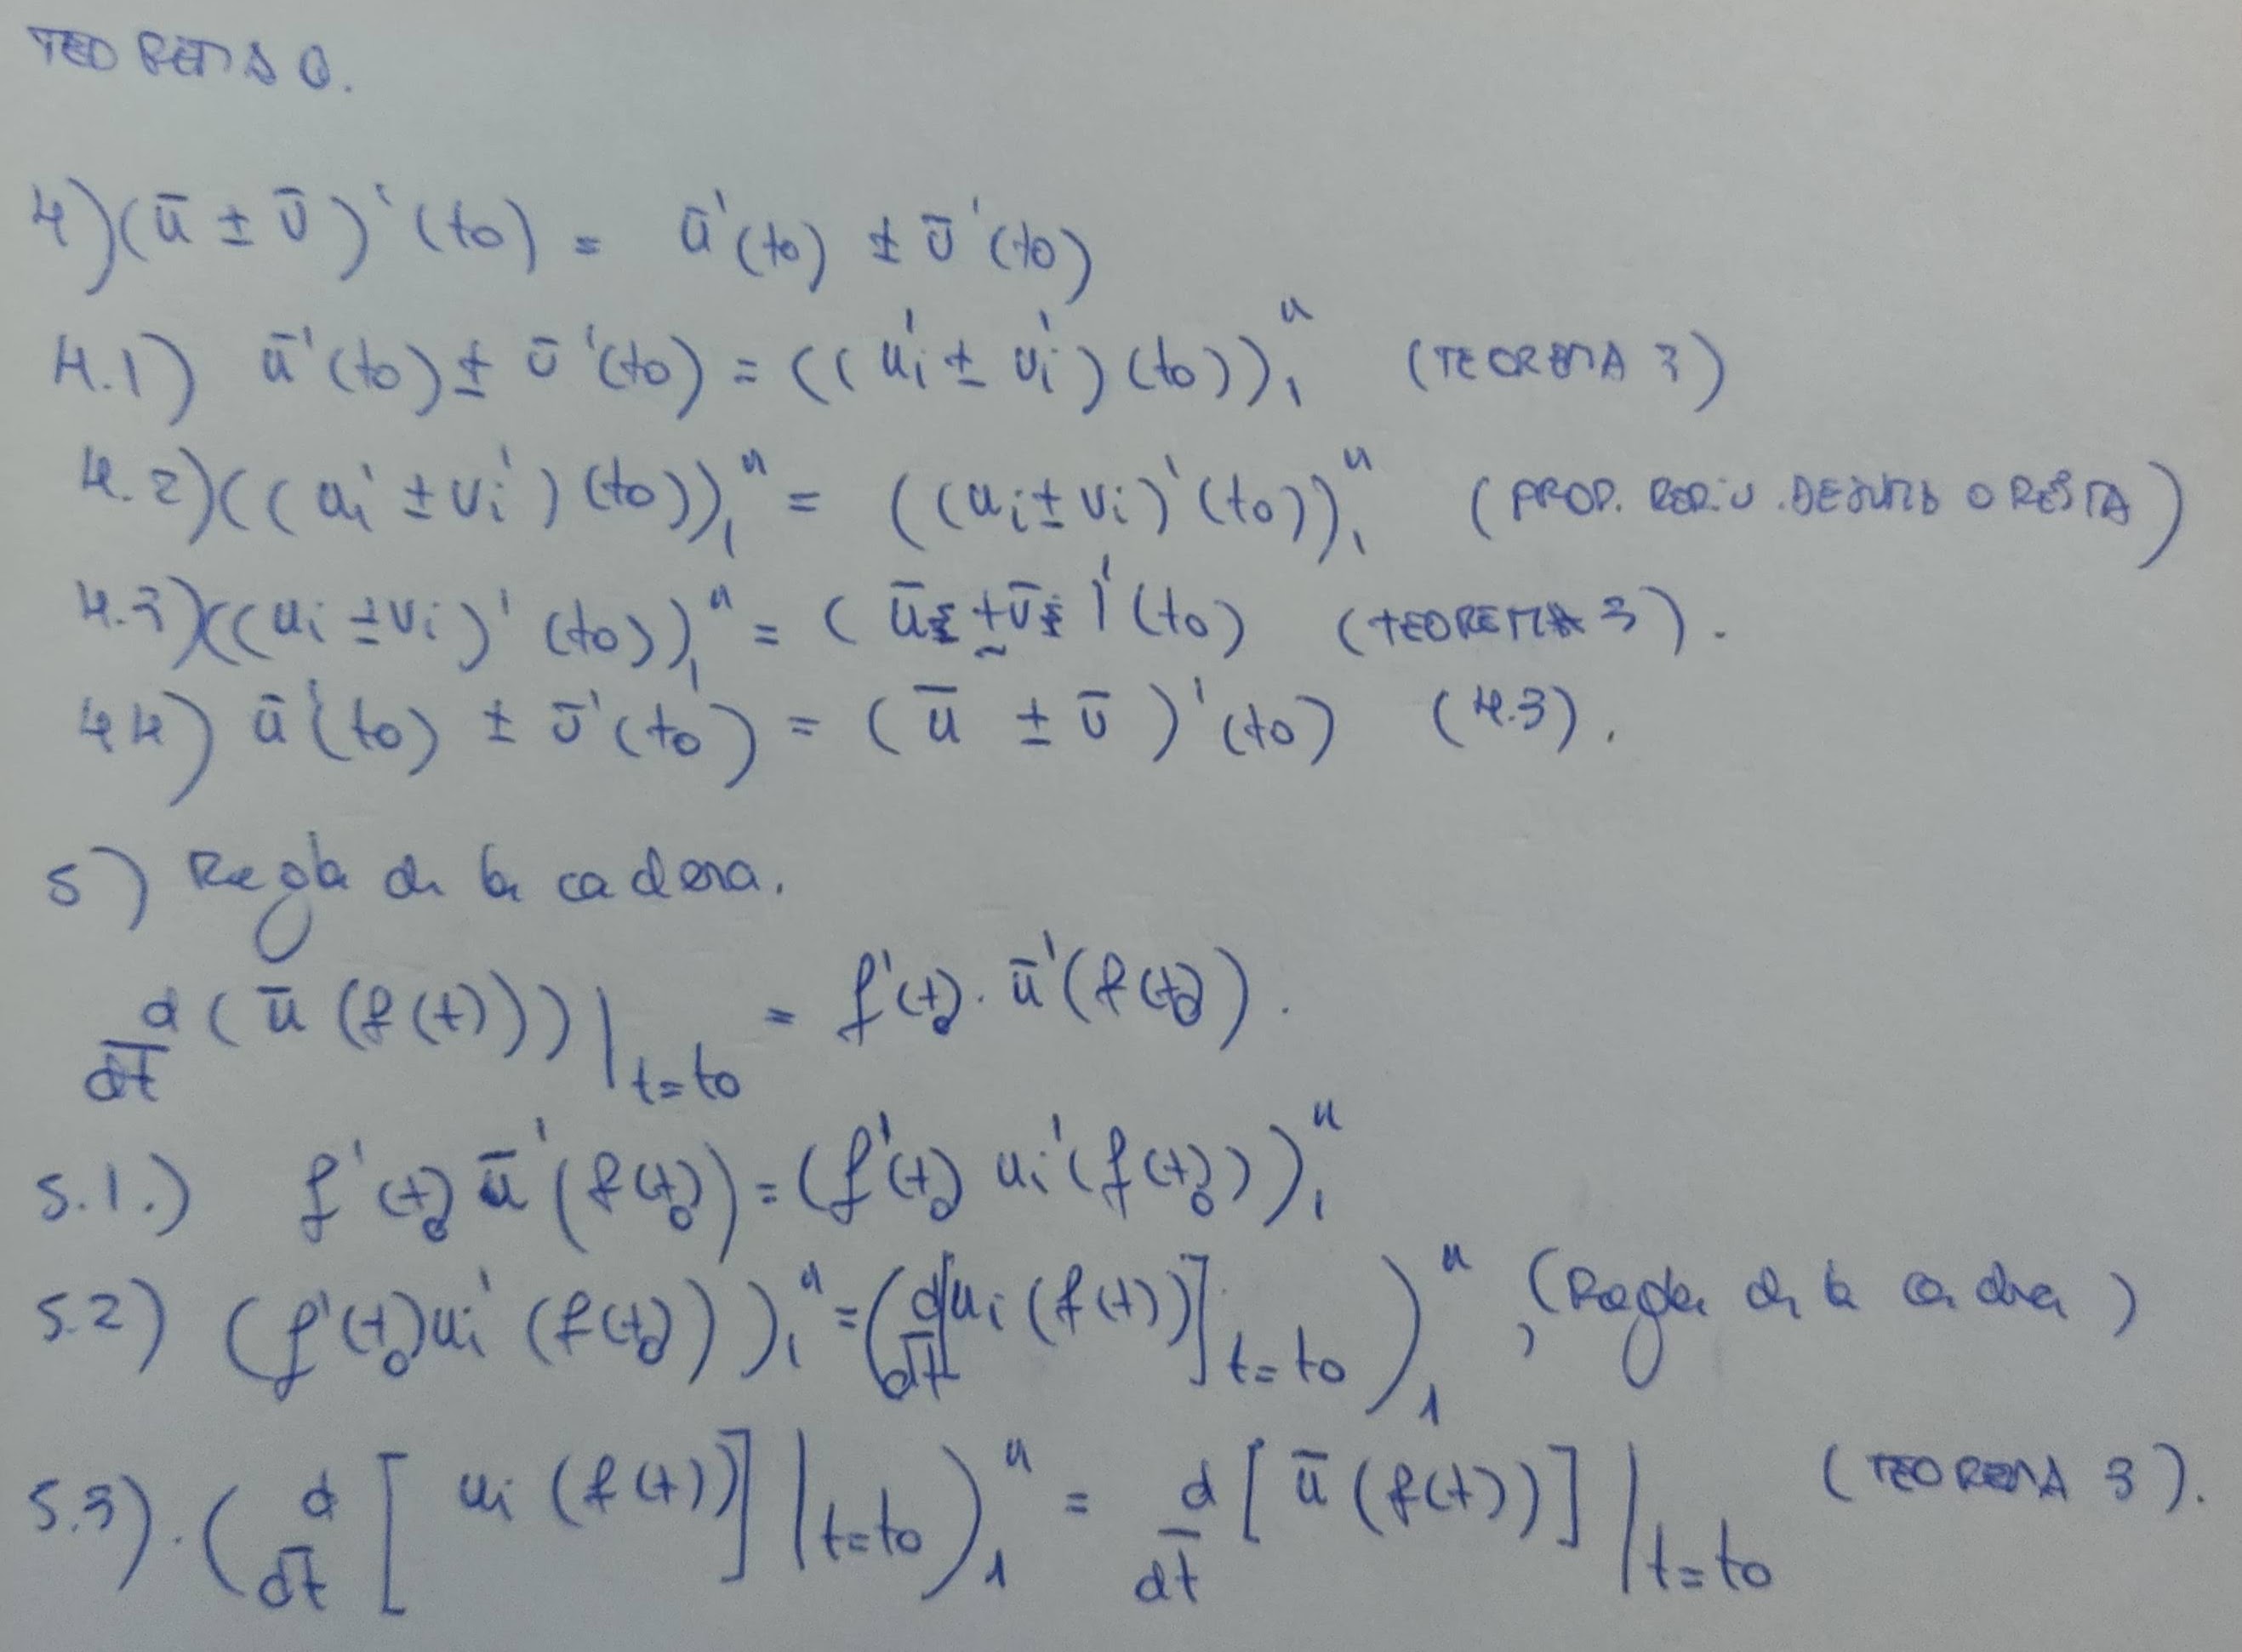 TEOREMA 0.
4) (ū ± v̄)'(t0) = ū'(t0) ± v̄'(t0)
4.1) ū'(t0) ± v̄'(t0) = ((ui' ± vi')(t0))₁ⁿ (TEOREMA 3)
4.2) ((ui' ± vi')(t0))₁ⁿ = ((ui ± vi)'(t0))₁ⁿ (PROP. DERIV. DE SUMA O RESTA)
4.3) ((ui ± vi)'(t0))₁ⁿ = (ū ± v̄)'(t0) (TEOREMA 3).
4.4) ū'(t0) ± v̄'(t0) = (ū ± v̄)'(t0) (4.3).
5) Regla de la cadena.
d/dt (ū(f(t)))|t=t0 = f'(t0). ū'(f(t0)).
5.1.) f'(t0) ū'(f(t0)) = (f'(t0) ui'(f(t0)))₁ⁿ
5.2) (f'(t0) ui'(f(t0)))₁ⁿ = (d/dt [ui(f(t))]t=t0)₁ⁿ, (Regla de la cadena)
5.3). (d/dt [ui(f(t))]|t=t0)₁ⁿ = d/dt [ū(f(t))]|t=t0 (TEOREMA 3).